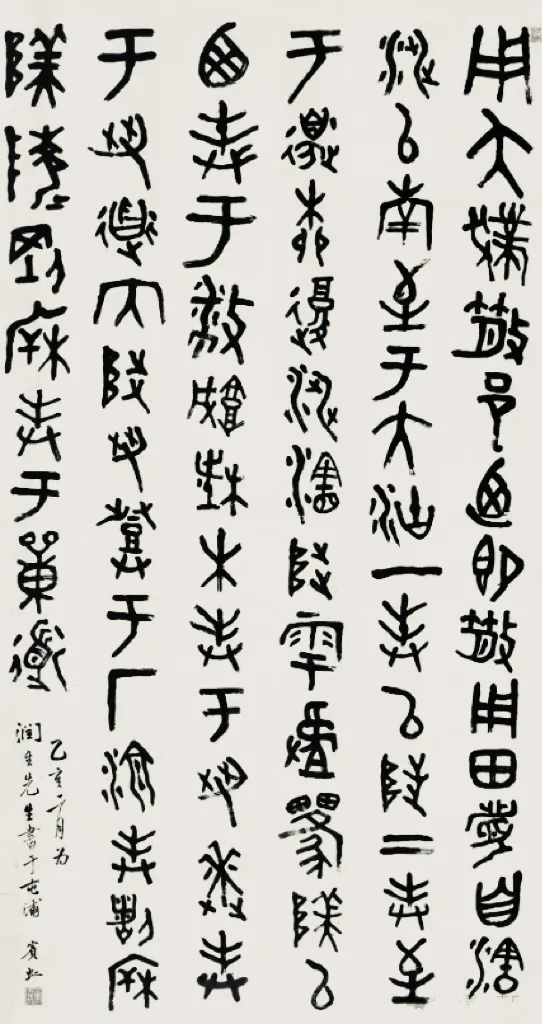 用夨撲散邑迺即散用田眉自瀗
涉以南至于大沽一封以陟二封至
于邊柳復涉瀗陟雩䖒隓以
西封于播城楮木封于芻逨封
于芻道内陟芻登于厂湶封割柝
隓陵剛柝封于單道
乙亥二月为
潤生先生書于屯浦 賓虹